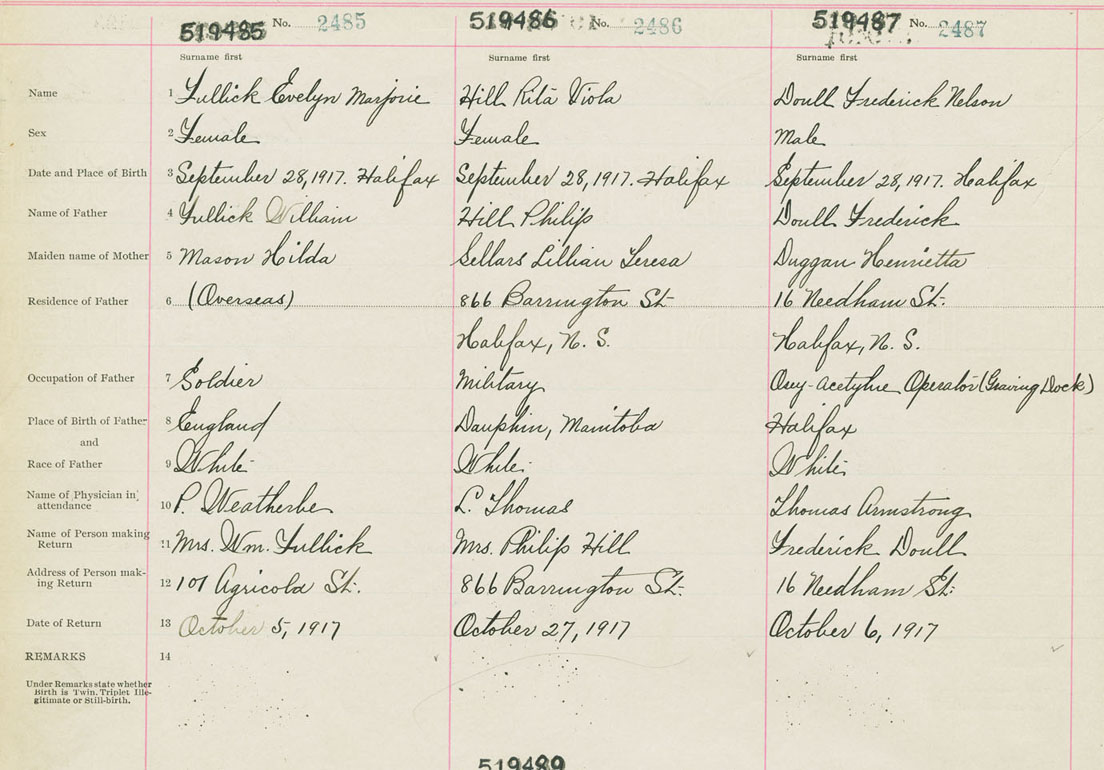 519485 No. 2485
519486 No. 2486
519487 No. 2487
Surname first
Surname first
Surname first
Name 1 Fullick Evelyn Marjorie
Hill Rita Viola
Doull Frederick Nelson
Sex 2 Female
Female
Male
Date and Place of Birth 3 September 28, 1917. Halifax
September 28, 1917. Halifax
September 28, 1917. Halifax
Name of Father 4 Fullick William
Hill Philip
Doull Frederick
Maiden name of Mother 5 Mason Hilda
Sellars Lillian Teresa
Duggan Henrietta
Residence of Father 6 (Overseas)
866 Barrington St.
16 Needham St.
Halifax, N. S.
Halifax, N. S.
Occupation of Father 7 Soldier
Military
Oxy-acetylne Operator (Graving Dock)
Place of Birth of Father 8 England
Dauphin, Manitoba
Halifax
and
Race of Father 9 White
White
White
Name of Physician in
attendance 10 P. Weatherbe
L. Thomas
Thomas Armstrong
Name of Person making
Return 11 Mrs. Wm. Fullick
Mrs. Philip Hill
Frederick Doull
Address of Person mak-
ing Return 12 101 Agricola St.
866 Barrington St.
16 Needham St.
Date of Return 13 October 5, 1917
October 27, 1917
October 6, 1917
REMARKS 14
Under Remarks state whether
Birth is Twin, Triplet Ille-
gitimate or Still-birth.